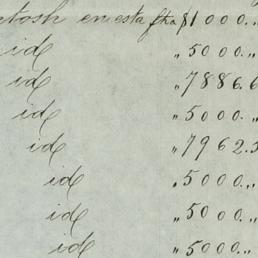 en esta fha $1000..
id " 5000..
id " 7886.6
id " 5000..
id " 7962.5
id " 5000..
id " 5000..
id " 5000..